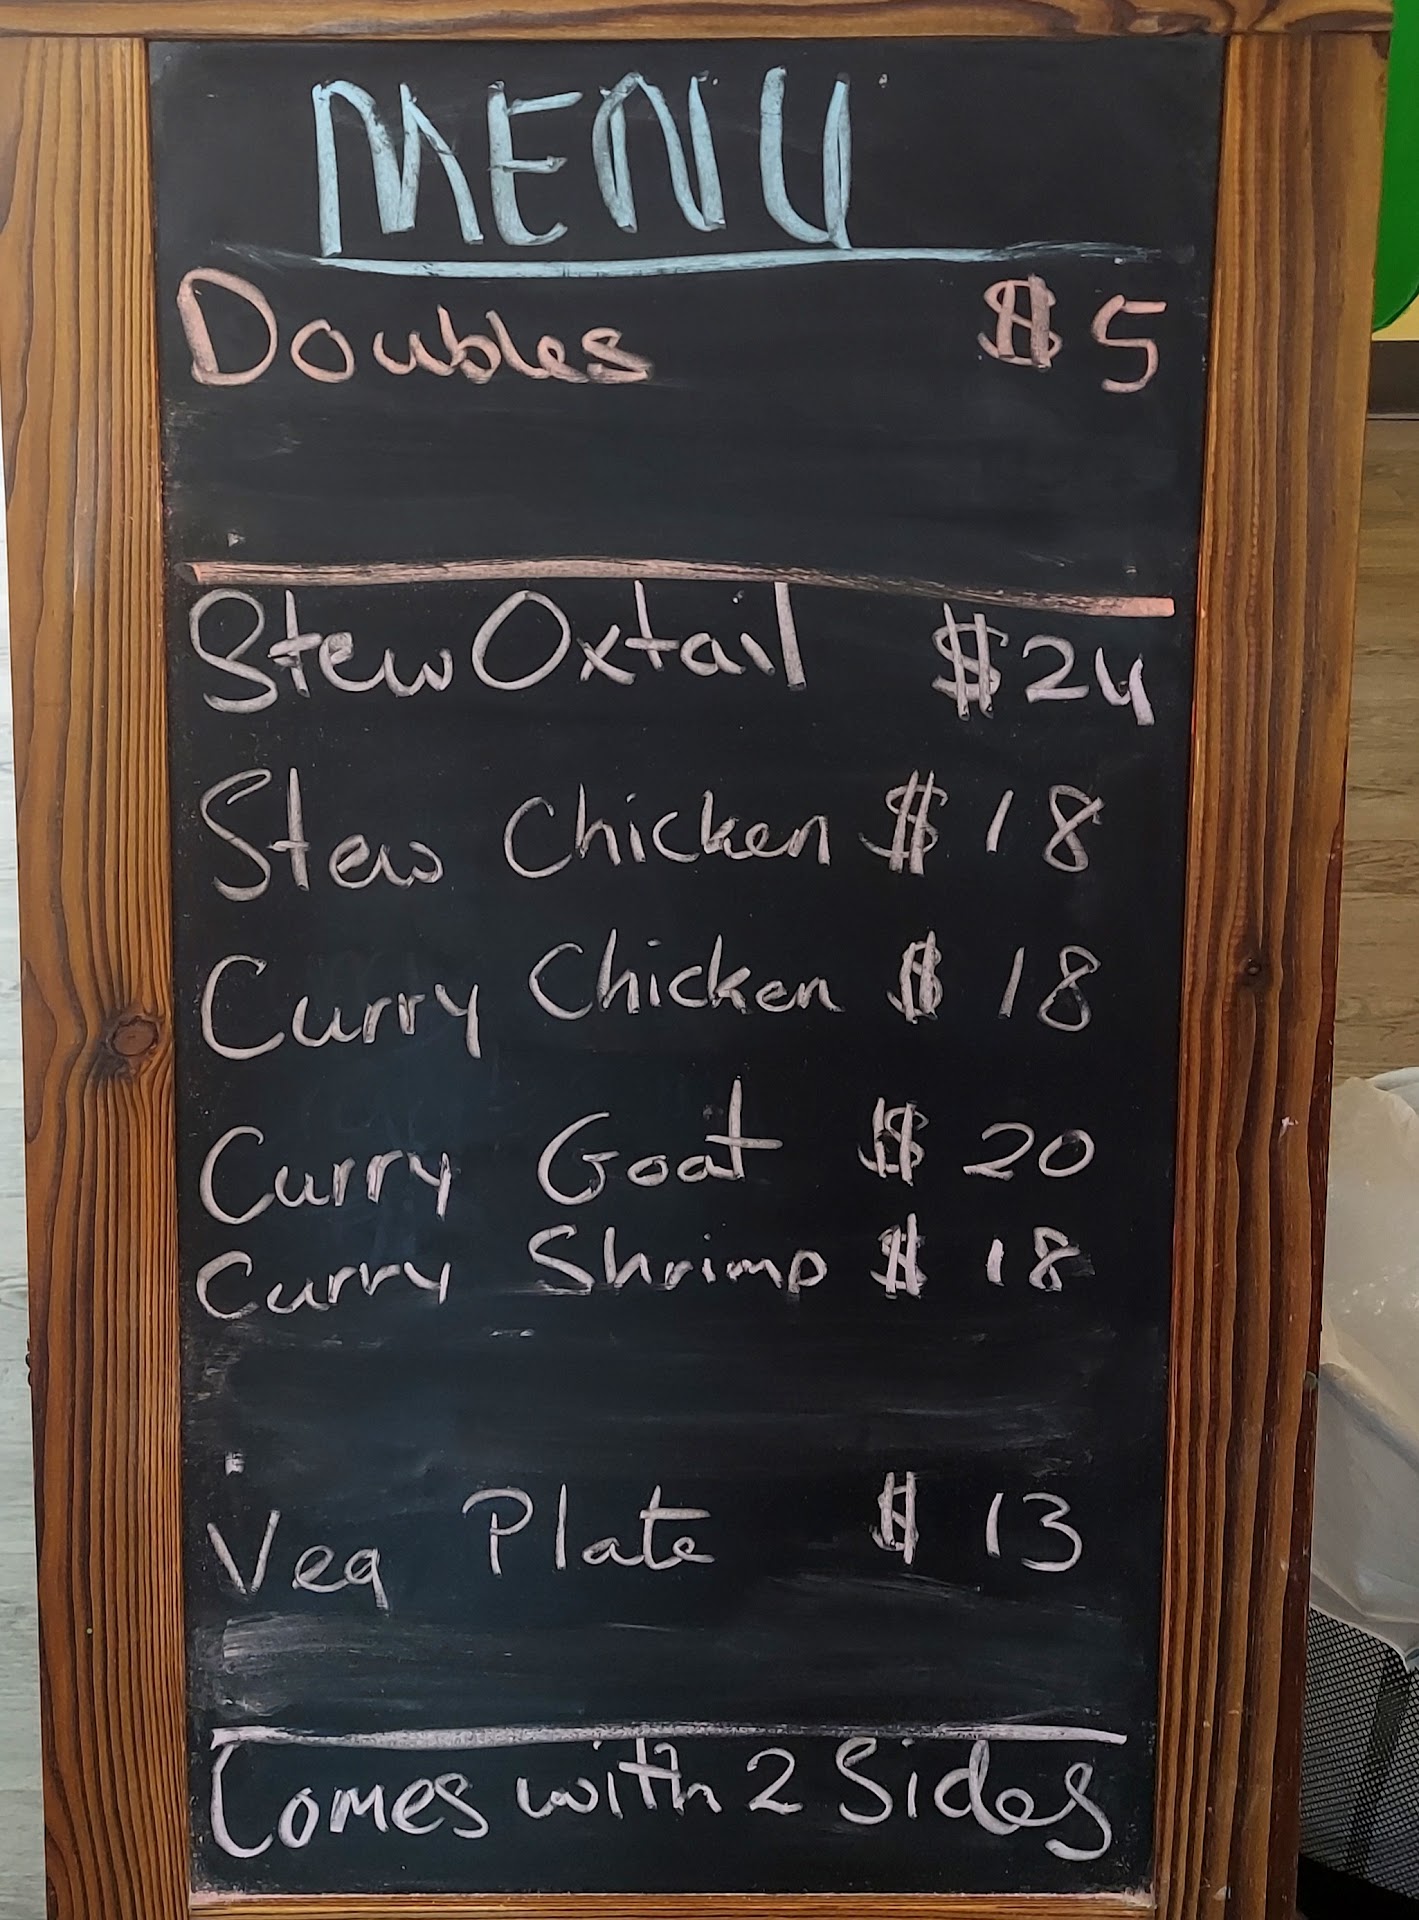 MENU
Doubles $5
Stew Oxtail $24
Stew Chicken $18
Curry Chicken $18
Curry Goat $20
Curry Shrimp $18
Veg Plate $13
Comes with 2 Sides